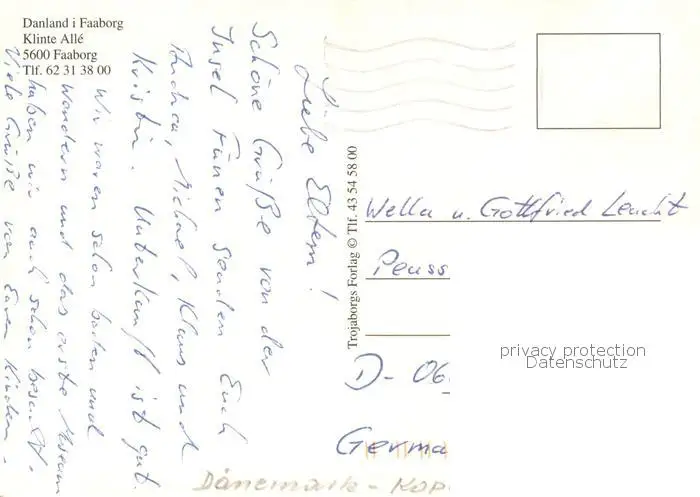 Danland i Faaborg
Klinte Allé
5600 Faaborg
Tlf. 62 31 38 00
Liebe Eltern!
Schöne Grüße von der
Insel Fünen senden Euch
Andrea, Michael, Klaus und
Kristin. Unterkunft ist gut.
Wir waren schon baden und
wandern und das erste Museum
haben wir auch schon besucht.
Viele Grüße von Euren Kindern.
Trojaborgs Forlag © Tlf. 43 54 58 00
Wella u. Gottfried Leucht
Peuss
D- 06
Germa
Dänemark - KOP
privacy protection
Datenschutz